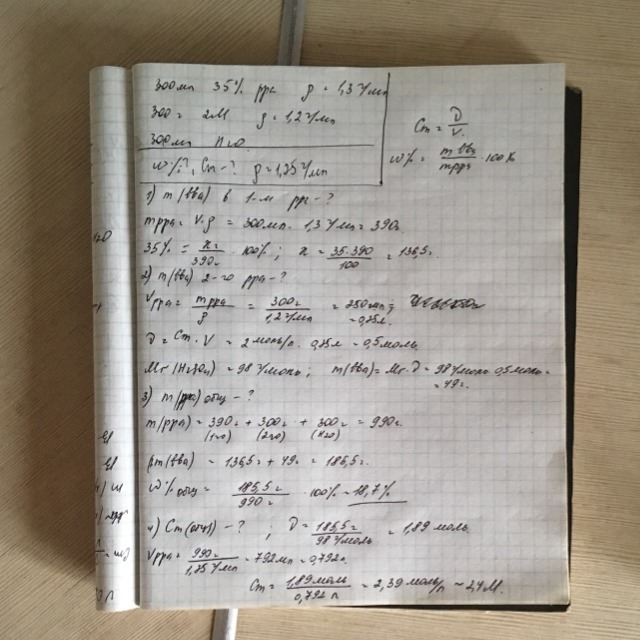 300мл 35% рра ρ = 1,3 г/мл
300г 2М ρ = 1,2 г/мл
300мл H2O
Cm = ν/V.
w%?, Cм-? ρ = 1,25 г/мл
w% = m вва/m рра · 100%
1) m(вва) в 1-м рре - ?
mрра = V·ρ = 300мл · 1,3 г/мл = 390г
35% = xг/390г · 100% ; x = 35·390/100 = 136,5г
2) m(вва) 2-го рра - ?
Vрра = mрра/ρ = 300г/1,2 г/мл = 250мл; = 0,25л
ν = Cm · V = 2 моль/л · 0,25л = 0,5моль
Mr(H2SO4) = 98 г/моль ; m(вва) = Mr·ν = 98 г/моль 0,5 моль =
= 49г.
3) m(рра) общ - ?
m(рра) = 390г + 300г + 300г = 990г.
(1го) (2го) (H2O)
m(вва) = 136,5г + 49г = 185,5г.
w% общ = 185,5г/990г · 100% = 18,7%
4) Cm(общ) - ? ; ν = 185,5г/98 г/моль = 1,89 моль
Vрра = 990г/1,25 г/мл = 792мл = 0,792л
Cm = 1,89моль/0,792л = 2,39 моль/л ~ 2,4М.